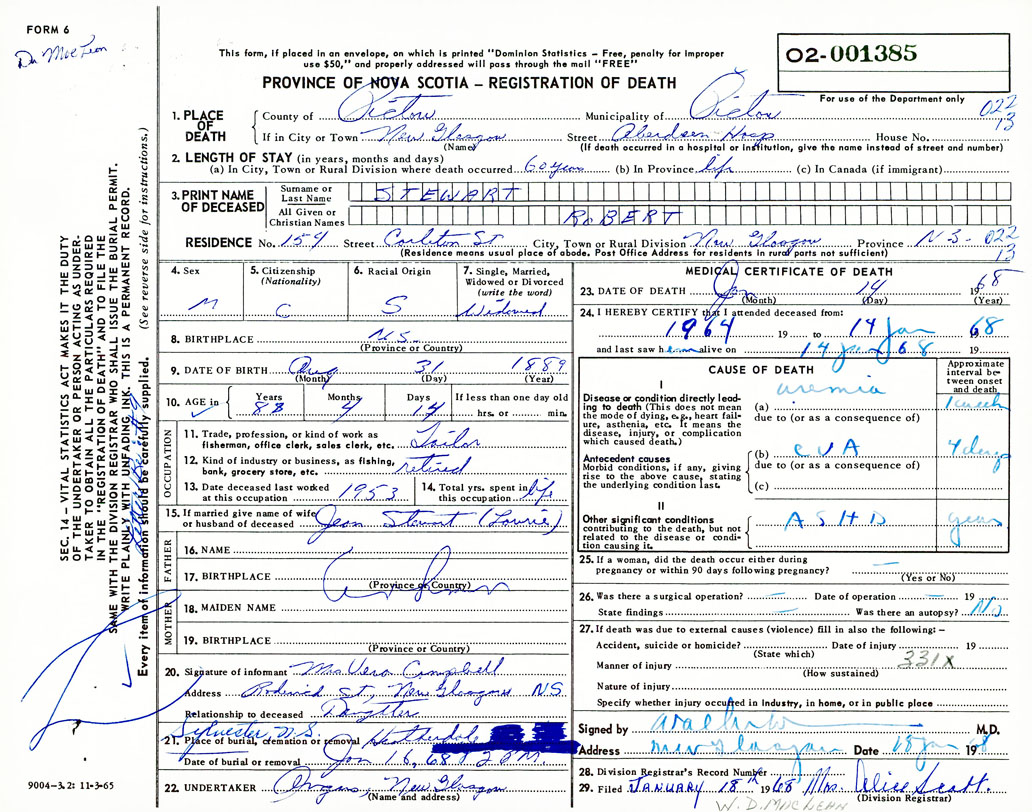 FORM 6
Dr. MacLean
This form, if placed in an envelope, on which is printed "Dominion Statistics – Free, penalty for improper
use $50," and properly addressed will pass through the mail "FREE"
PROVINCE OF NOVA SCOTIA – REGISTRATION OF DEATH
02-001385
For use of the Department only
022
13
1. PLACE OF DEATH
County of Pictou Municipality of Pictou
If in City or Town New Glasgow Street Aberdeen Hosp House No.
(Name) (If death occurred in a hospital or institution, give the name instead of street and number)
2. LENGTH OF STAY (in years, months and days)
(a) In City, Town or Rural Division where death occurred 60 years (b) In Province life (c) In Canada (if immigrant)
3. PRINT NAME OF DECEASED
Surname or Last Name STEWART
All Given or Christian Names ROBERT
RESIDENCE No. 159 Street Carleton St City, Town or Rural Division New Glasgow Province N-S- 022
13
(Residence means usual place of abode. Post Office Address for residents in rural parts not sufficient)
4. Sex M
5. Citizenship (Nationality) C
6. Racial Origin S
7. Single, Married, Widowed or Divorced (write the word) Widowed
8. BIRTHPLACE N.S.
(Province or Country)
9. DATE OF BIRTH Aug 31 1889
(Month) (Day) (Year)
10. AGE in Years 78 Months 4 Days 14 If less than one day old hrs. or min.
OCCUPATION
11. Trade, profession, or kind of work as fisherman, office clerk, sales clerk, etc. Tailor
12. Kind of industry or business, as fishing, bank, grocery store, etc. retired
13. Date deceased last worked at this occupation 1953
14. Total yrs. spent in this occupation life
15. If married give name of wife or husband of deceased Jean Stewart (Lowrie)
FATHER
16. NAME
17. BIRTHPLACE
(Province or Country)
MOTHER
18. MAIDEN NAME
19. BIRTHPLACE
(Province or Country)
20. Signature of informant Mrs Vera Campbell
Address Roderick St, New Glasgow NS
Relationship to deceased Daughter
Sylvester, N.S.
21. Place of burial, cremation or removal Heatherdale
Date of burial or removal Jan 16, 68 2 P.M.
22. UNDERTAKER New Glasgow
(Name and address)
MEDICAL CERTIFICATE OF DEATH
23. DATE OF DEATH Jan 14 1968
(Month) (Day) (Year)
24. I HEREBY CERTIFY that I attended deceased from:
1964 19 to 14 Jan 68
and last saw him alive on 14 Jan 68 19
CAUSE OF DEATH
Approximate interval between onset and death
I
Disease or condition directly leading to death (This does not mean the mode of dying, e.g., heart failure, asthenia, etc. It means the disease, injury, or complication which caused death.)
(a) uremia 1 week
due to (or as a consequence of)
Antecedent causes
Morbid conditions, if any, giving rise to the above cause, stating the underlying condition last.
(b) CVA 4 days
due to (or as a consequence of)
(c)
II
Other significant conditions
contributing to the death, but not related to the disease or condition causing it.
ASHD years
25. If a woman, did the death occur either during pregnancy or within 90 days following pregnancy? —
(Yes or No)
26. Was there a surgical operation? — Date of operation — 19
State findings — Was there an autopsy? No
27. If death was due to external causes (violence) fill in also the following: –
Accident, suicide or homicide? Date of injury 19
(State which)
331X
Manner of injury
(How sustained)
Nature of injury
Specify whether injury occurred in industry, in home, or in public place
Signed by M.D.
Address New Glasgow Date 18 Jan 1968
28. Division Registrar's Record Number
29. Filed JANUARY 18th 1968 Mrs. Alice Scott.
(Division Registrar)
W. D. MacLEAN
SEC. 14 – VITAL STATISTICS ACT MAKES IT THE DUTY
OF THE UNDERTAKER OR PERSON ACTING AS UNDER-
TAKER TO OBTAIN ALL THE PARTICULARS REQUIRED
IN THE "REGISTRATION OF DEATH" AND TO FILE THE
SAME WITH THE DIVISION REGISTRAR WHO SHALL ISSUE THE BURIAL PERMIT.
WRITE PLAINLY WITH UNFADING INK. THIS IS A PERMANENT RECORD.
Every item of information should be carefully supplied. (See reverse side for instructions.)
9004–3.2: 11-3-65